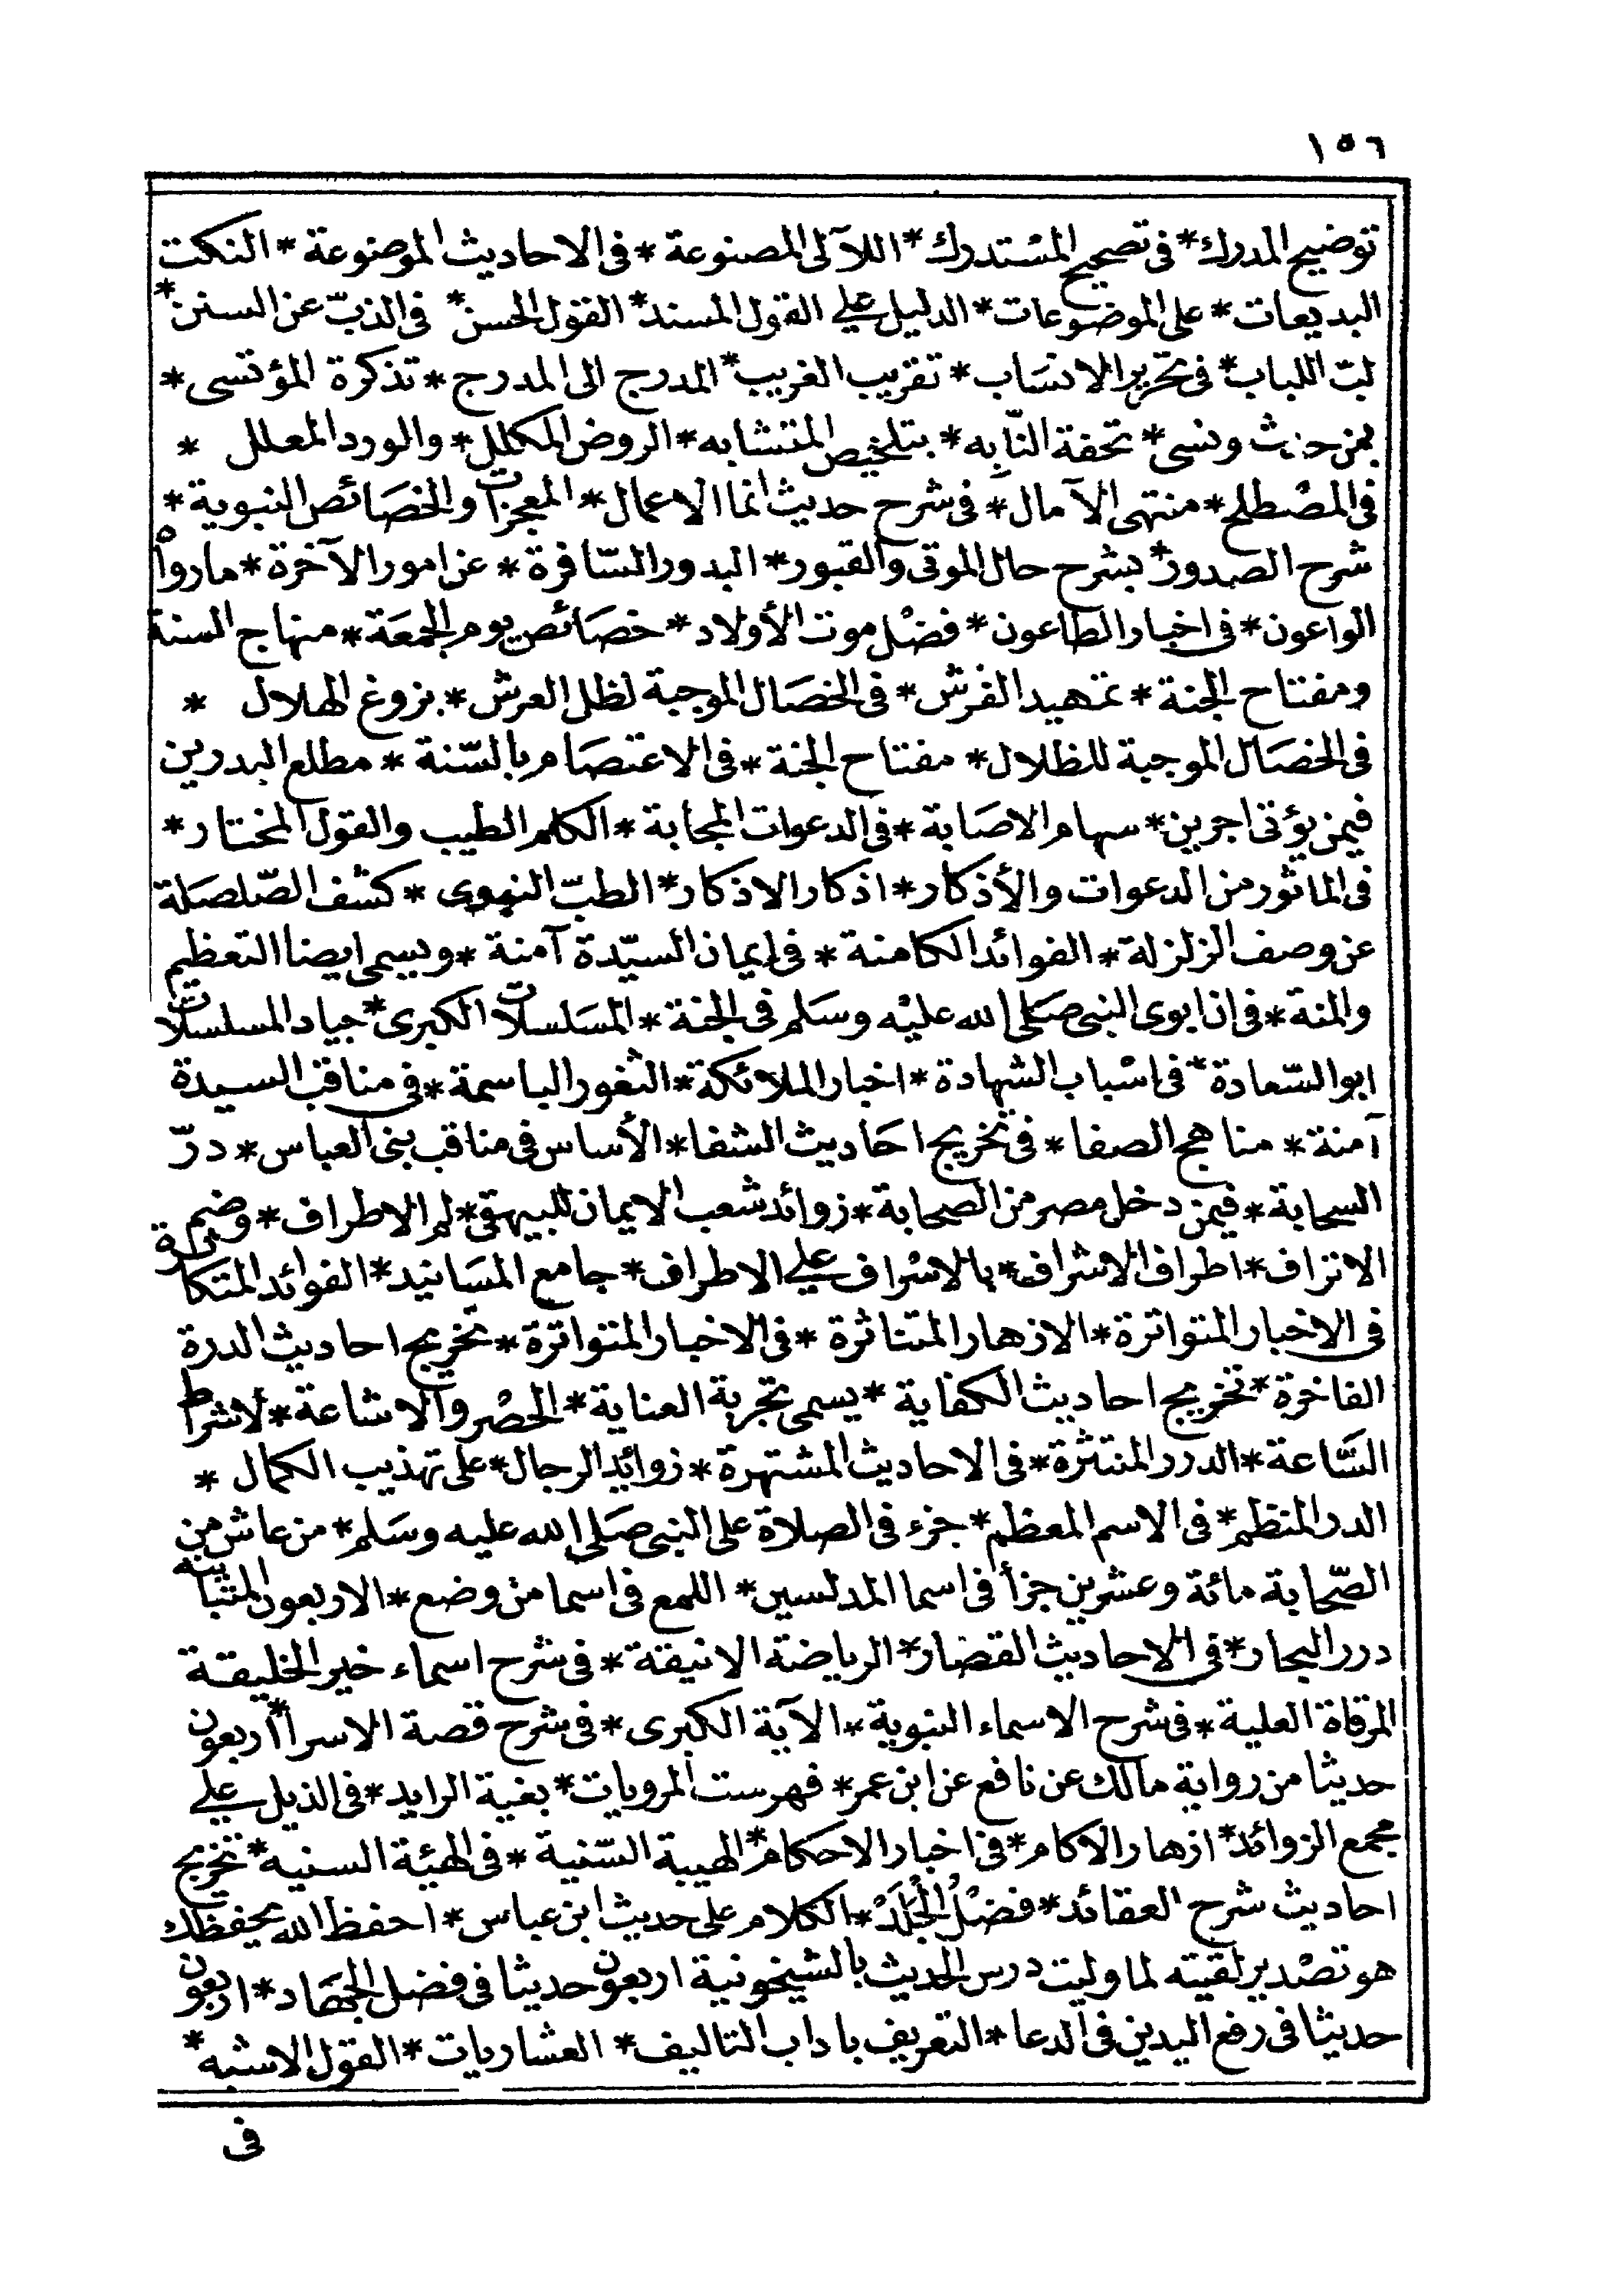 ١٥٦
توضيح المدرك * فى تصحيح المستدرك * اللآلى المصنوعة * فى الاحاديث الموضوعة * النكت
البديعات * على الموضوعات * الدليل على القول المسند * القول الحسن * فى الذبّ عن السنن *
لبّ اللباب * فى تحرير الانسَاب * تقريب الغريب * المدرج الى المدرج * تذكرة المؤتسى *
بمن حدث ونسى * تحفة النّابه * بتلخيص المتشابه * الروض المكلل * والورد المعلل *
فى المصْطلح * منتهى الآمال * فى شرح حديث انما الاعمال * المعجزات والخصَائص النبوية *
شرح الصدور * بشرح حال الموتى والقبور * البدور السّافرة * عن امور الآخرة * مارواه
الواعون * فى اخبار الطاعون * فضْل موت الأولاد * خصَائص يوم الجمعَة * منهاج السنة
ومفتاح الجنة * تمهيد الفرش * فى الخصَال الموجبة لظل العرش * بزوغ الهلال *
فى الخصَال الموجبة للظلال * مفتاح الجنة * فى الاعتصَام بالسّنة * مطلع البدرين
فيمن يؤتى اجرين * سهام الاصَابة * فى الدعوات المجابة * الكلم الطيب والقول المختار *
فى الماثور من الدعوات والأذكار * اذكار الاذكار * الطبّ النبوى * كشف الصّلصَلة
عن وصف الزلزلة * الفوائد الكامنة * فى إيمان السيّدة آمنة * ويسمى ايضا التعظيم
والمنة * فى ان ابوى النبى صَلى الله عليْه وسَلم فى الجنة * المسَلسلات الكبرى * جياد المسلسلات
ابوا السّعادة * فى اسْباب الشهادة * اخبار الملائكة * الثغور الباسمة * فى مناقب السيدة
آمنة * مناهج الصفا * فى تخريج احَاديث الشفا * الأساس فى مناقب بنى العباس * درّ
السحابة * فيمن دخل مصر من الصحابة * زوائد شعب الايمان للبيهقى * لم الاطراف * وضم
الاتراف * اطراف الاشراف * بالاشراف على الاطراف * جامع المسَانيد * الفوائد المتكاثرة
فى الاخبار المتواترة * الازهار المتناثرة * فى الاخبار المتواترة * تخريج احاديث الدرة
الفاخرة * تخريج احاديث الكفاية * يسمى تجربة العناية * الحصْر والاشاعة * لأشراط
السَّاعة * الدرر المنتثرة * فى الاحاديث المشتهرة * زوائد الرجال * على تهذيب الكمال *
الدر المنظم * فى الاسم المعظم * جزء فى الصلاة على النبى صَلى الله عليه وسَلم * من عاش من
الصّحابة مائة وعشرين جزأ فى اسما المدلسين * اللمع فى اسما من وضع * الاربعون المتباينه
درر البحار * فى الاحاديث القصَار * الرياضة الانيقة * فى شرح اسماء خير الخليقة
المرقاة العلية * فى شرح الاسماء النبوية * الآية الكبرى * فى شرح قصة الاسرا * اربعون
حديثا من رواية مالك عن نافع عن ابن عمر * فهرست المرويات * بغية الرايد * فى الذيل على
مجمع الزوائد * ازهار الاكام * فى اخبار الاحكام * الهيبة السّنية * فى الهيئة السنيه * تخريج
احاديث شرح العقائد * فضْلُ الْجَلَدْ * الكلام على حديث ابن عباس * احفظ الله يحفظك
هو تصْدير لقيته لما وليت درس الحديث بالشيخونية اربعون حديثا فى فضل الجهَاد * اربعون
حديثا فى رفع اليدين فى الدعا * التعريف باداب التاليف * العشاريات * القول الاشبه *
فى